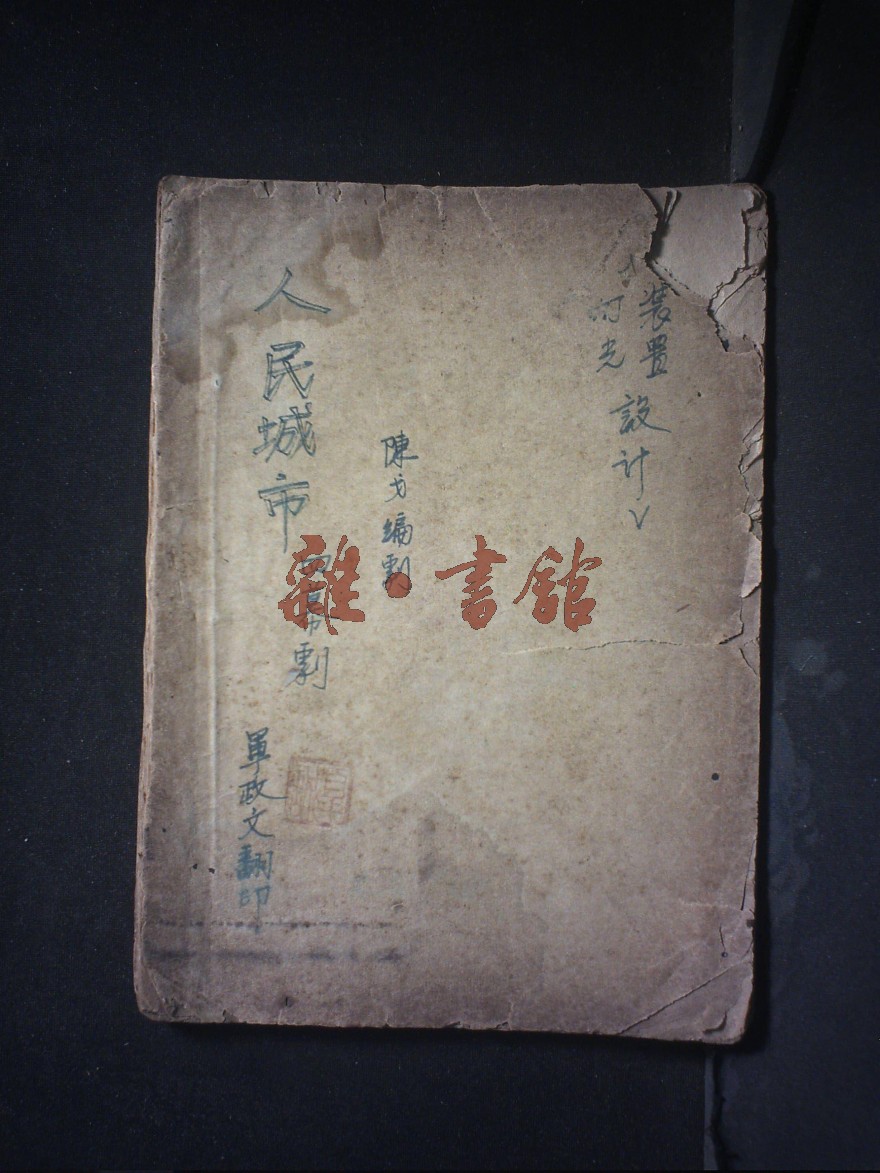 裝置設計
光
陳戈編劇
人民城市
四幕劇
軍政文翻印
雜·書館